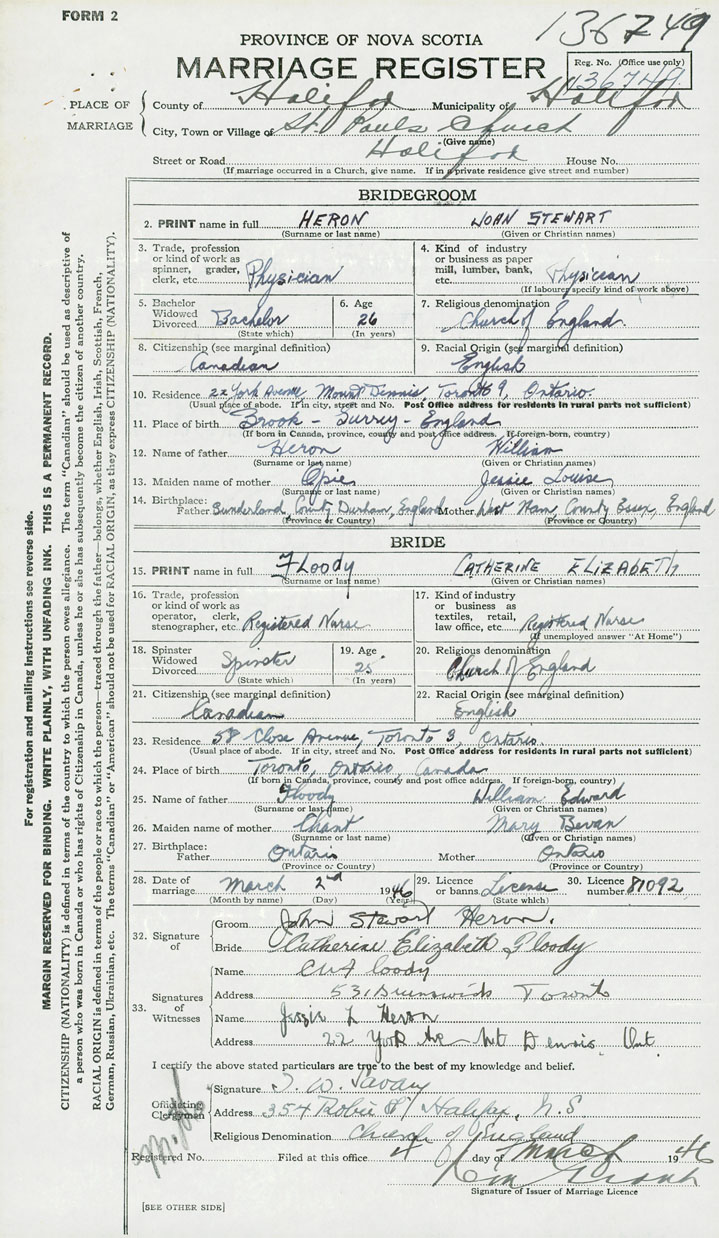 FORM 2
136749
PROVINCE OF NOVA SCOTIA
MARRIAGE REGISTER
Reg. No. (Office use only)
136749
PLACE OF MARRIAGE
County of Halifax Municipality of Halifax
City, Town or Village of St. Pauls Church
(Give name)
Halifax
Street or Road House No.
(If marriage occurred in a Church, give name. If in a private residence give street and number)
BRIDEGROOM
2. PRINT name in full HERON JOHN STEWART
(Surname or last name) (Given or Christian names)
3. Trade, profession or kind of work as spinner, grader, clerk, etc. Physician
4. Kind of industry or business as paper mill, lumber, bank, etc. Physician
(If labourer specify kind of work above)
5. Bachelor Widowed Divorced Bachelor
(State which)
6. Age 26
(In years)
7. Religious denomination
Church of England
8. Citizenship (see marginal definition)
Canadian
9. Racial Origin (see marginal definition)
English
10. Residence 22 York Avenue, Mount Dennis, Toronto 9, Ontario.
(Usual place of abode. If in city, street and No. Post Office address for residents in rural parts not sufficient)
11. Place of birth Brook - Surrey - England
(If born in Canada, province, county and post office address. If foreign-born, country)
12. Name of father Heron William
(Surname or last name) (Given or Christian names)
13. Maiden name of mother Opie Jessie Louise
(Surname or last name) (Given or Christian names)
14. Birthplace: Father Sunderland, County Durham, England Mother West Ham, County Essex, England
(Province or Country) (Province or Country)
BRIDE
15. PRINT name in full FLOODY CATHERINE ELIZABETH
(Surname or last name) (Given or Christian names)
16. Trade, profession or kind of work as operator, clerk, stenographer, etc. Registered Nurse
17. Kind of industry or business as textiles, retail, law office, etc. Registered Nurse
(If unemployed answer "At Home")
18. Spinster Widowed Divorced Spinster
(State which)
19. Age 25
(In years)
20. Religious denomination
Church of England
21. Citizenship (see marginal definition)
Canadian
22. Racial Origin (see marginal definition)
English
23. Residence 58 Close Avenue, Toronto 3, Ontario.
(Usual place of abode. If in city, street and No. Post Office address for residents in rural parts not sufficient)
24. Place of birth Toronto, Ontario, Canada
(If born in Canada, province, county and post office address. If foreign-born, country)
25. Name of father Floody William Edward
(Surname or last name) (Given or Christian names)
26. Maiden name of mother Chant Mary Bevan
(Surname or last name) (Given or Christian names)
27. Birthplace: Father Ontario Mother Ontario
(Province or Country) (Province or Country)
28. Date of marriage March 2nd 1946
(Month by name) (Day) (Year)
29. Licence or banns License
(State which)
30. Licence number 81092
32. Signature of
Groom John Stewart Heron.
Bride Catherine Elizabeth Floody
33. Signatures of Witnesses
Name
Address 531 Brunswick Toronto
Name Jessie L Heron
Address 22 York Ave Mt Dennis Ont.
I certify the above stated particulars are true to the best of my knowledge and belief.
Officiating Clergyman
Signature T. W. Savary
Address 354 Robie St Halifax, N.S
Religious Denomination Church of England
Registered No. Filed at this office 4 day of March 1946
Signature of Issuer of Marriage Licence
[SEE OTHER SIDE]
For registration and mailing instructions see reverse side.
MARGIN RESERVED FOR BINDING. WRITE PLAINLY, WITH UNFADING INK. THIS IS A PERMANENT RECORD.
CITIZENSHIP (NATIONALITY) is defined in terms of the country to which the person owes allegiance. The term "Canadian" should be used as descriptive of
a person who was born in Canada or who has rights of Citizenship in Canada, unless he or she has subsequently become the citizen of another country.
RACIAL ORIGIN is defined in terms of the people or race to which the person—traced through the father—belongs, whether English, Irish, Scottish, French,
German, Russian, Ukrainian, etc. The terms "Canadian" or "American" should not be used for RACIAL ORIGIN, as they express CITIZENSHIP (NATIONALITY).